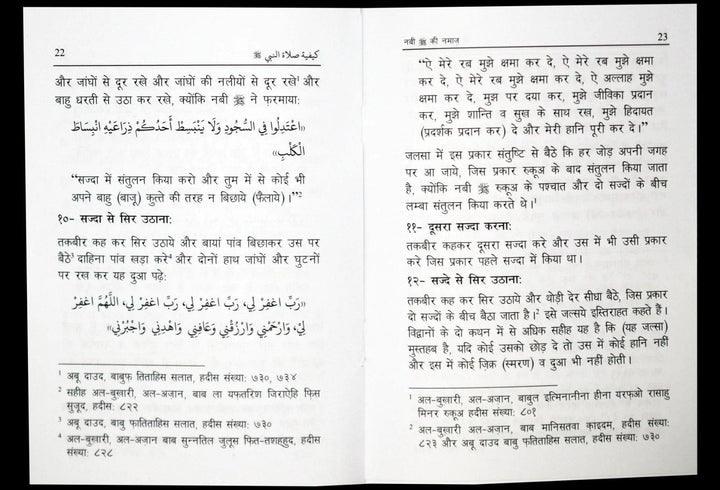 22 كيفية صلاة النبي ﷺ
और जांघों से दूर रखे और जांघों की नलीयों से दूर रखे¹ और
बाहु धरती से उठा कर रखे, क्योंकि नबी ﷺ ने फ़रमाया:
«اعْتَدِلُوا فِي السُّجُودِ وَلَا يَنْبَسِطْ أَحَدُكُمْ ذِرَاعَيْهِ انْبِسَاطَ
الْكَلْبِ»
“सज्दा में संतुलन किया करो और तुम में से कोई भी
अपने बाहु (बाजू) कुत्ते की तरह न बिछाये (फैलाये)।”²
१०- सज्दा से सिर उठाना:
तकबीर कह कर सिर उठाये और बायां पांव बिछाकर उस पर
बैठे³ दाहिना पांव खड़ा करे⁴ और दोनों हाथ जांघों और घुटनों
पर रख कर यह दुआ पढ़े:
«رَبِّ اغْفِرْ لِي، رَبِّ اغْفِرْ لِي، رَبِّ اغْفِرْ لِي، اللَّهُمَّ اغْفِرْ
لِيْ، وَارْحَمْنِي وَارْزُقْنِي وَعَافِنِي وَاهْدِنِي وَاجْبُرْنِي»
¹ अबू दाउद, बाबुफ़ तिताहिस सलात, हदीस संख्या: ७३०, ७३४
² सहीह अल-बुख़ारी, अल-अज़ान, बाब ला यफतरिश जिराऐहि फ़िस
सुजूद, हदीस: ८२२
³ अबू दाउद, बाबु फातितिाहिस सलात, हदीस संख्या: ७३०
⁴ अल-बुख़ारी, अल-अज़ान बाब सुन्नतिल जुलूस फित-तशह्हुद, हदीस
संख्या: ८२८
नबी ﷺ की नमाज़ 23
“ऐ मेरे रब मुझे क्षमा कर दे, ऐ मेरे रब मुझे क्षमा
कर दे, ऐ मेरे रब मुझे क्षमा कर दे, ऐ अल्लाह मुझे
क्षमा कर दे, मुझ पर दया कर, मुझे जीविका प्रदान
कर, मुझे शान्ति व सुख के साथ रख, मुझे हिदायत
(प्रदर्शक प्रदान कर) दे और मेरी हानि पूरी कर दे।”
जलसा में इस प्रकार संतुष्टि से बैठे कि हर जोड़ अपनी जगह
पर आ जाये, जिस प्रकार रुकूअ के बाद संतुलन किया जाता
है, क्योंकि नबी ﷺ रुकूअ के पश्चात और दो सज्दों के बीच
लम्बा संतुलन किया करते थे।¹
११- दूसरा सज्दा करना:
तकबीर कहकर दूसरा सज्दा करे और उस में भी उसी प्रकार
करे जिस प्रकार पहले सज्दा में किया था।
१२- सज्दे से सिर उठाना:
तकबीर कह कर सिर उठाये और थोड़ी देर सीधा बैठे, जिस प्रकार
दो सज्दों के बीच बैठा जाता है।² इसे जल्सये इस्तिराहत कहते हैं।
विद्वानों के दो कथन में से अधिक सहीह यह है कि (यह जल्सा)
मुस्तहब है, यदि कोई उसको छोड़ दे तो उस में कोई हानि नहीं
और इस में कोई ज़िक्र (स्मरण) व दुआ भी नहीं होती।
¹ अल-बुख़ारी, अल-अज़ान, बाबुल इत्मिनानीना हीना यरफओ रासाहु
मिनर रुकूअ हदीस संख्या: ८०१
² अल-बुख़ारी अल-अज़ान, बाब मानिसतवा क़ाइदम, हदीस संख्या:
८२३ और अबू दाउद बाबु फ़तिताहिस सलात, हदीस संख्या: ७३०